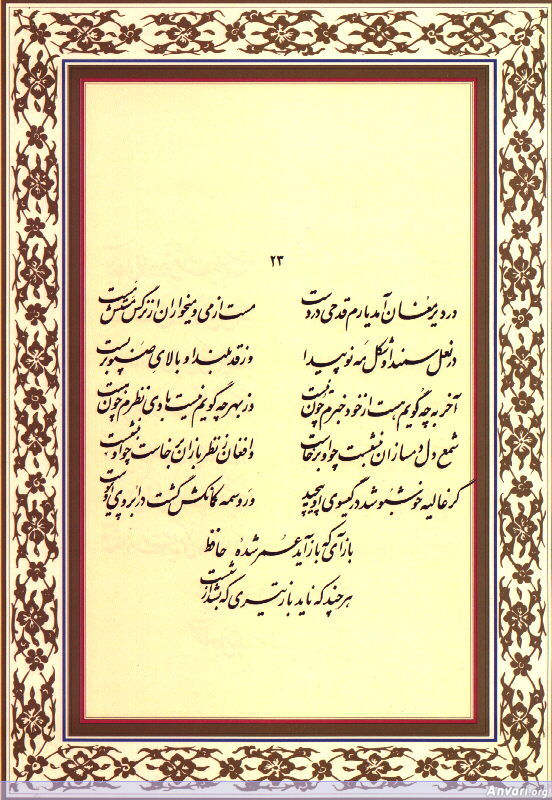 ۲۳
در دیر مغان آمد یارم قدحی در دست مست از می و میخواران از نرگس مستش مست
در نعل سمند او شکل مه نو پیدا وز قد بلند او بالای صنوبر پست
آخر به چه گویم هست از خود خبرم چون نیست وز بهر چه گویم نیست با وی نظرم چون هست
شمع دل دمسازان بنشست چو او برخاست و افغان ز نظربازان برخاست چو او بنشست
گر غالیه خوشبو شد در گیسوی او پیچید ور وسمه کمانکش گشت در ابروی او پیوست
بازآی که بازآید عمر شده حافظ
هر چند که ناید باز تیری که بشد از شست
Anvari.org